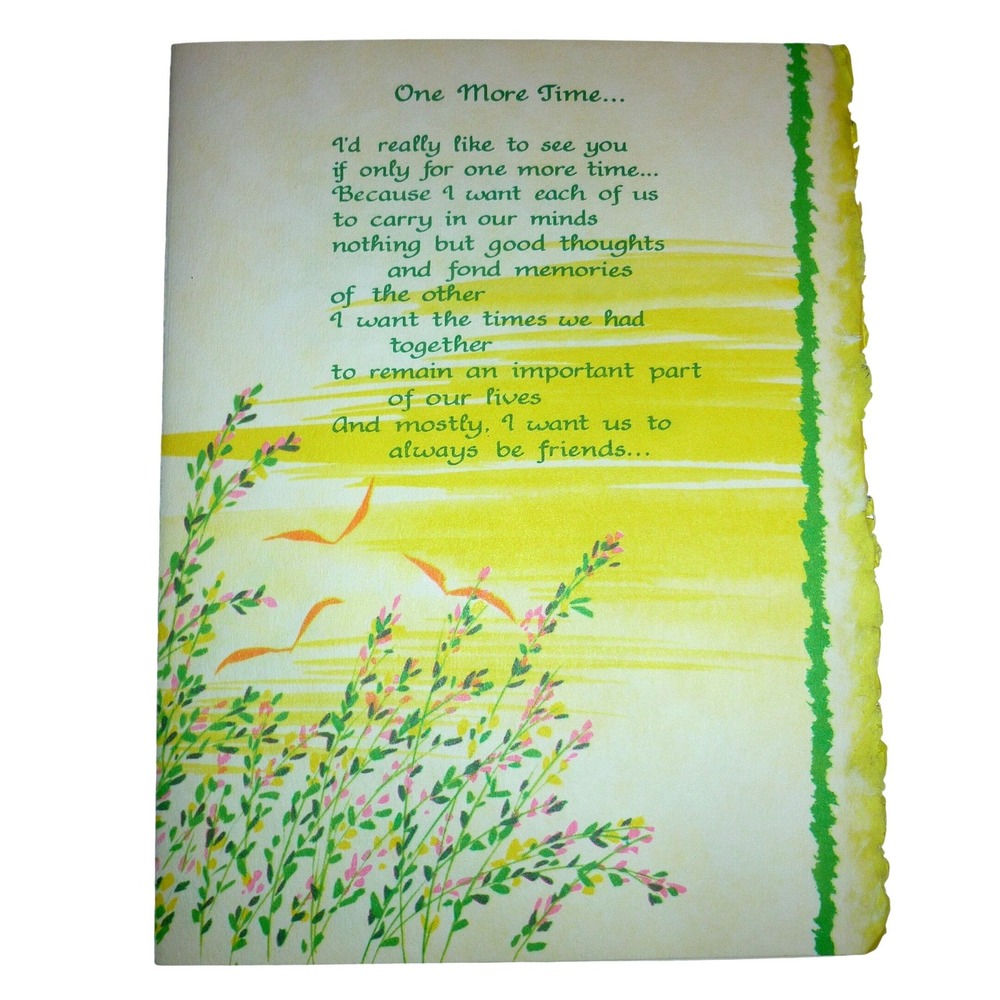 One More Time...
I'd really like to see you
if only for one more time...
Because I want each of us
to carry in our minds
nothing but good thoughts
and fond memories
of the other
I want the times we had
together
to remain an important part
of our lives
And mostly, I want us to
always be friends...